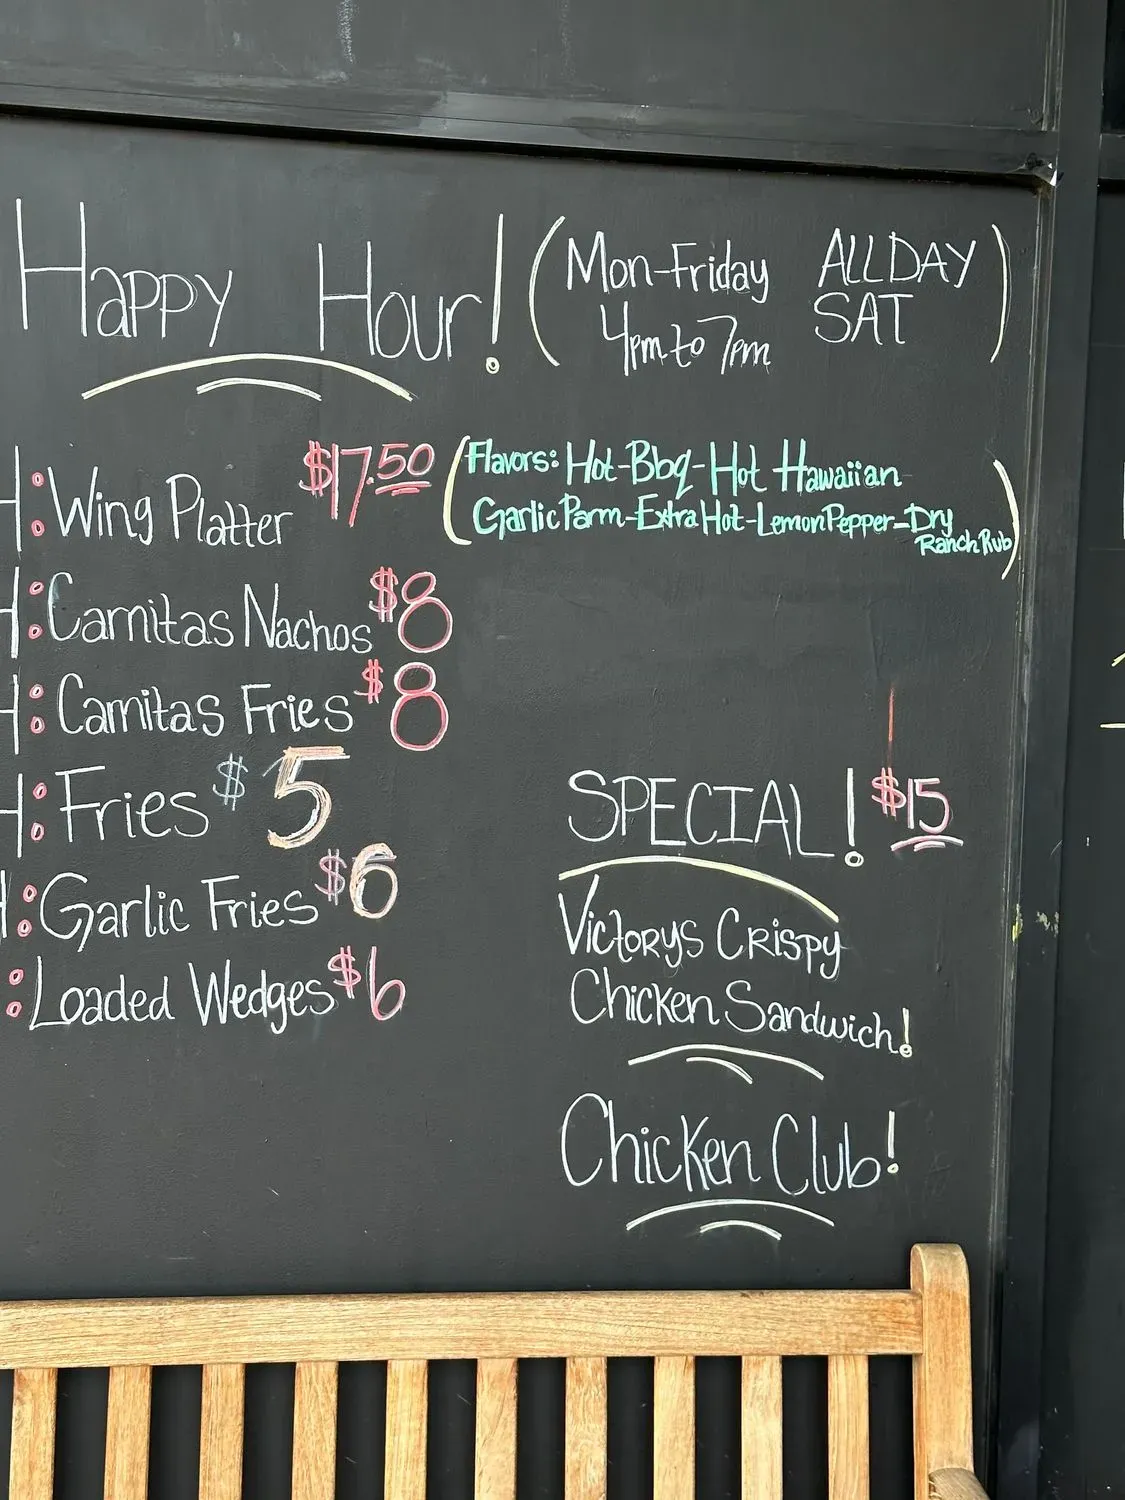 Happy Hour! (Mon-Friday ALLDAY
4pm to 7pm SAT)
H: Wing Platter $17.50 (Flavors: Hot-Bbq-Hot Hawaiian-
Garlic Parm-Extra Hot-Lemon Pepper-Dry
Ranch Rub)
H: Carnitas Nachos $8
H: Carnitas Fries $8
H: Fries $5
H: Garlic Fries $6
: Loaded Wedges $6
SPECIAL! $15
Victorys Crispy
Chicken Sandwich!
Chicken Club!